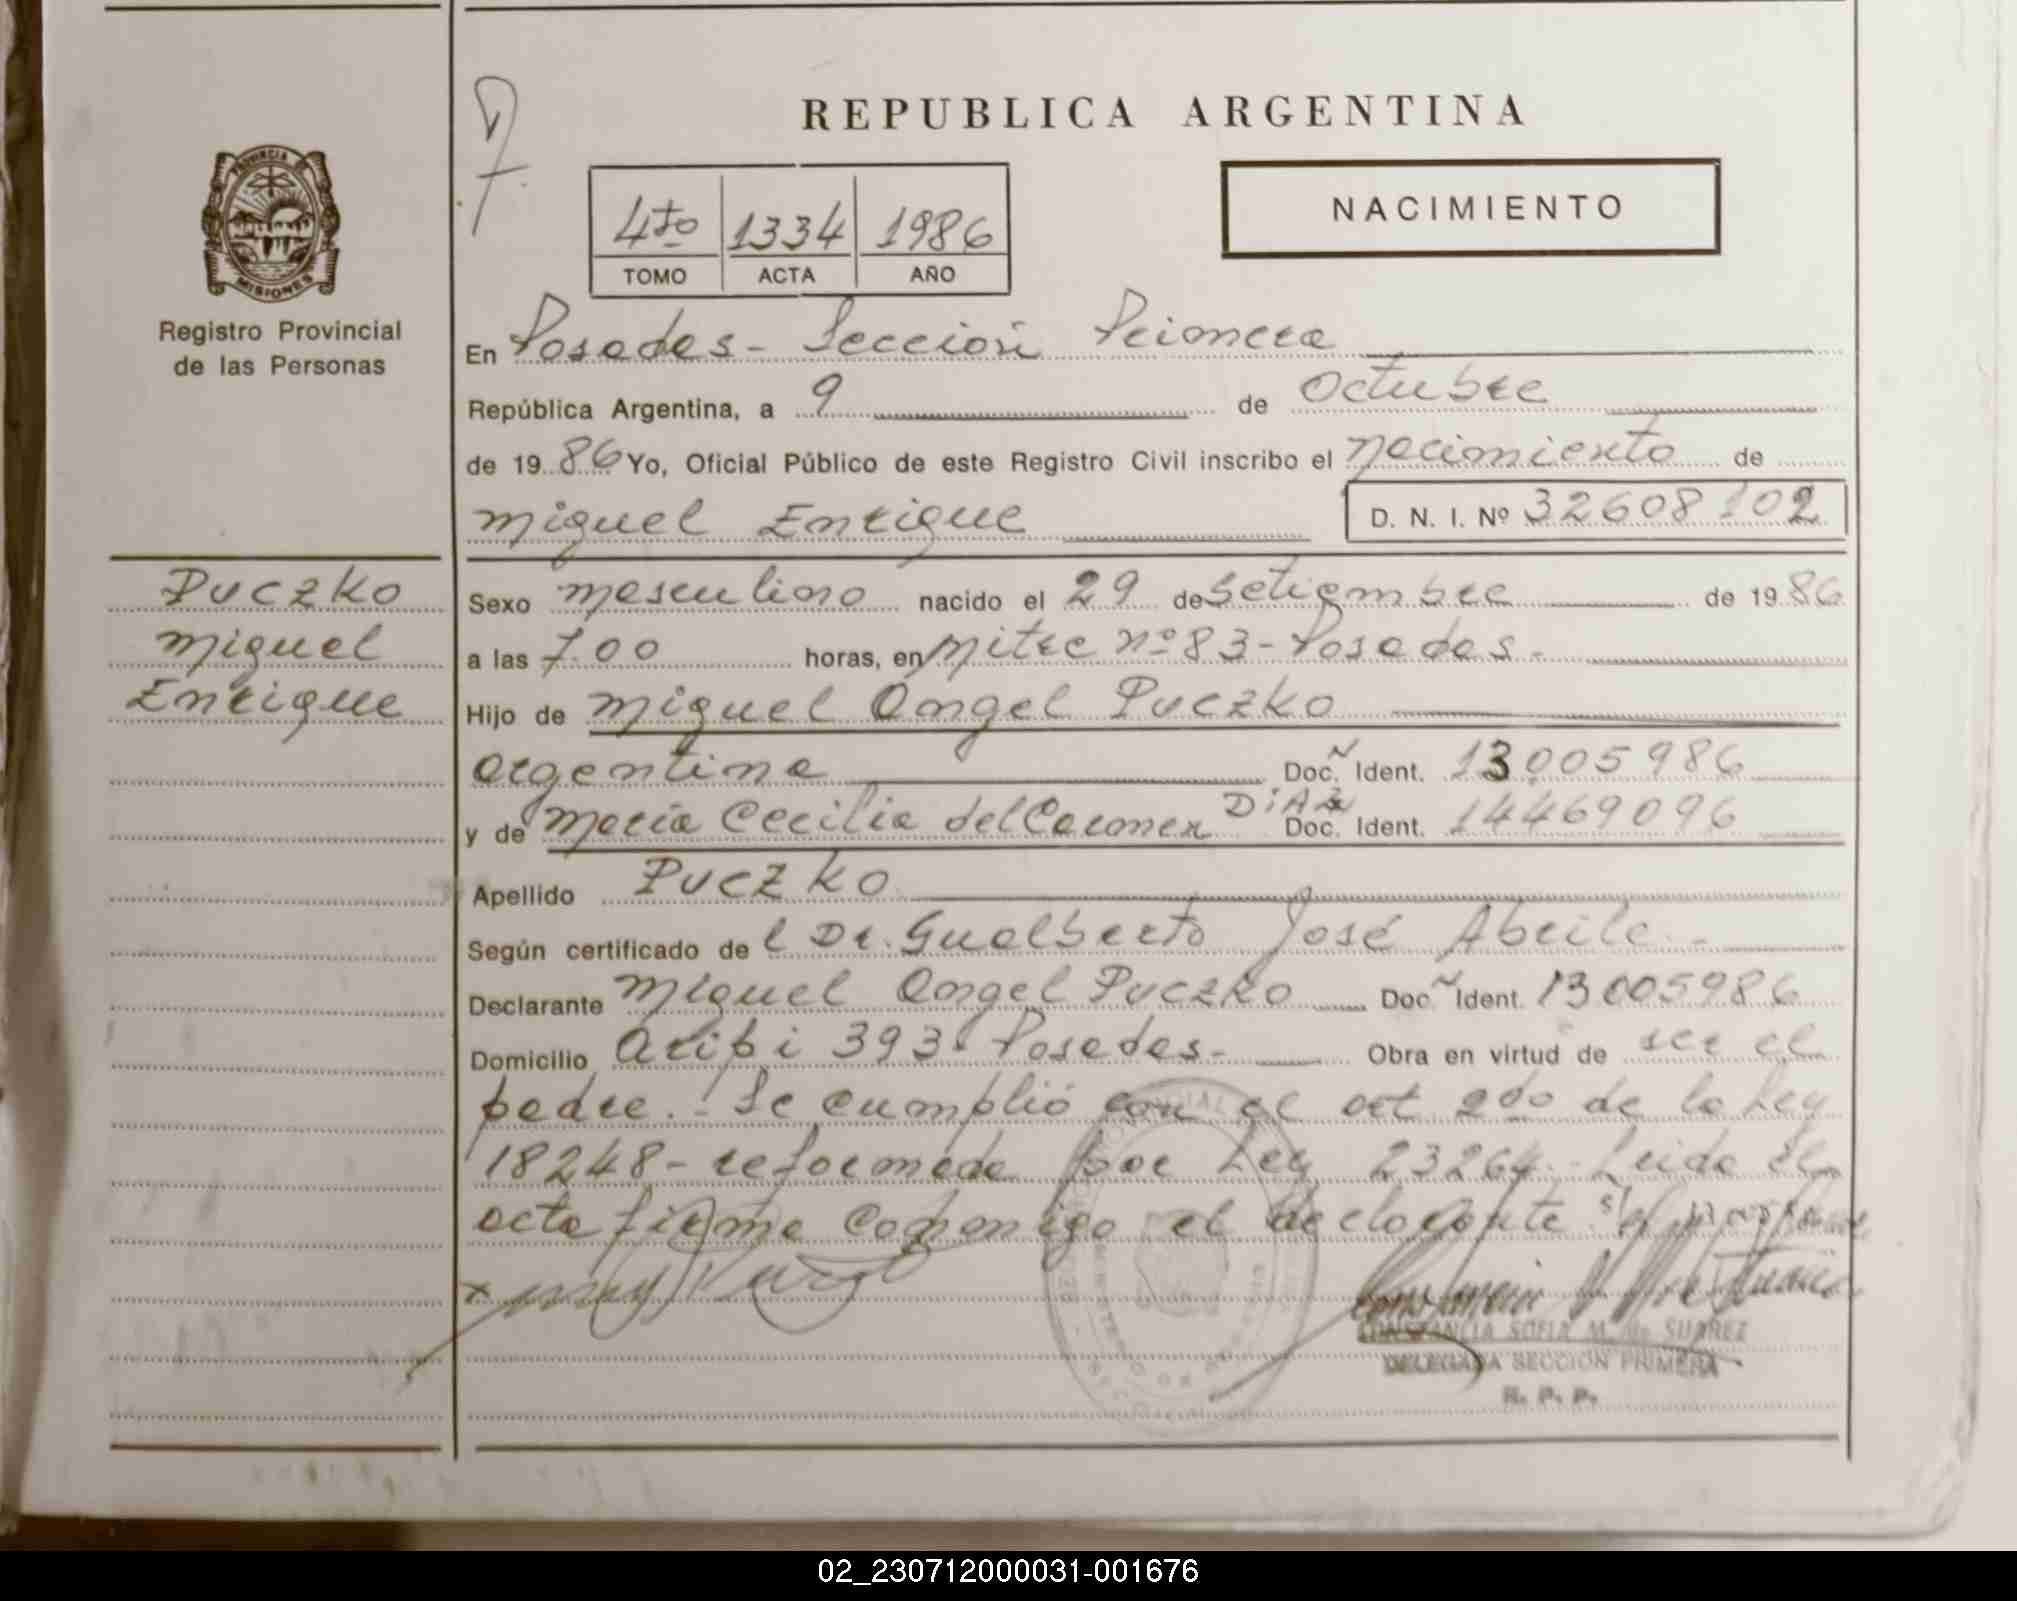 REPUBLICA ARGENTINA
NACIMIENTO
4to 1334 1986
TOMO ACTA AÑO
PROVINCIA DE
MISIONES
Registro Provincial
de las Personas
En Posadas - Sección Primera
República Argentina, a 9 de Octubre
de 19 86 Yo, Oficial Público de este Registro Civil inscribo el nacimiento de
Miguel Enrique D. N. I. Nº 32608102
Puczko
Miguel
Enrique
Sexo masculino nacido el 29 de Setiembre de 19 86
a las 7.00 horas, en Mitre nº 83 - Posadas -
Hijo de Miguel Angel Puczko
argentina Doc. Ident. 13005986
y de María Cecilia del Carmen DiAz Doc. Ident. 14469096
Apellido Puczko
Según certificado de l Dr. Gualberto José Abrile -
Declarante Miguel Angel Puczko Doc. Ident. 13005986
Domicilio Aripi 393 - Posadas - Obra en virtud de ser el
padre. - Se cumplió con el art 2do de la Ley
18248 - reformada por Ley 23264. - Leida el
acta firma conmigo el declarante
CONSTANCIA SOFIA M. de SUAREZ
DELEGADA SECCION PRIMERA
R. P. P.
02_230712000031-001676